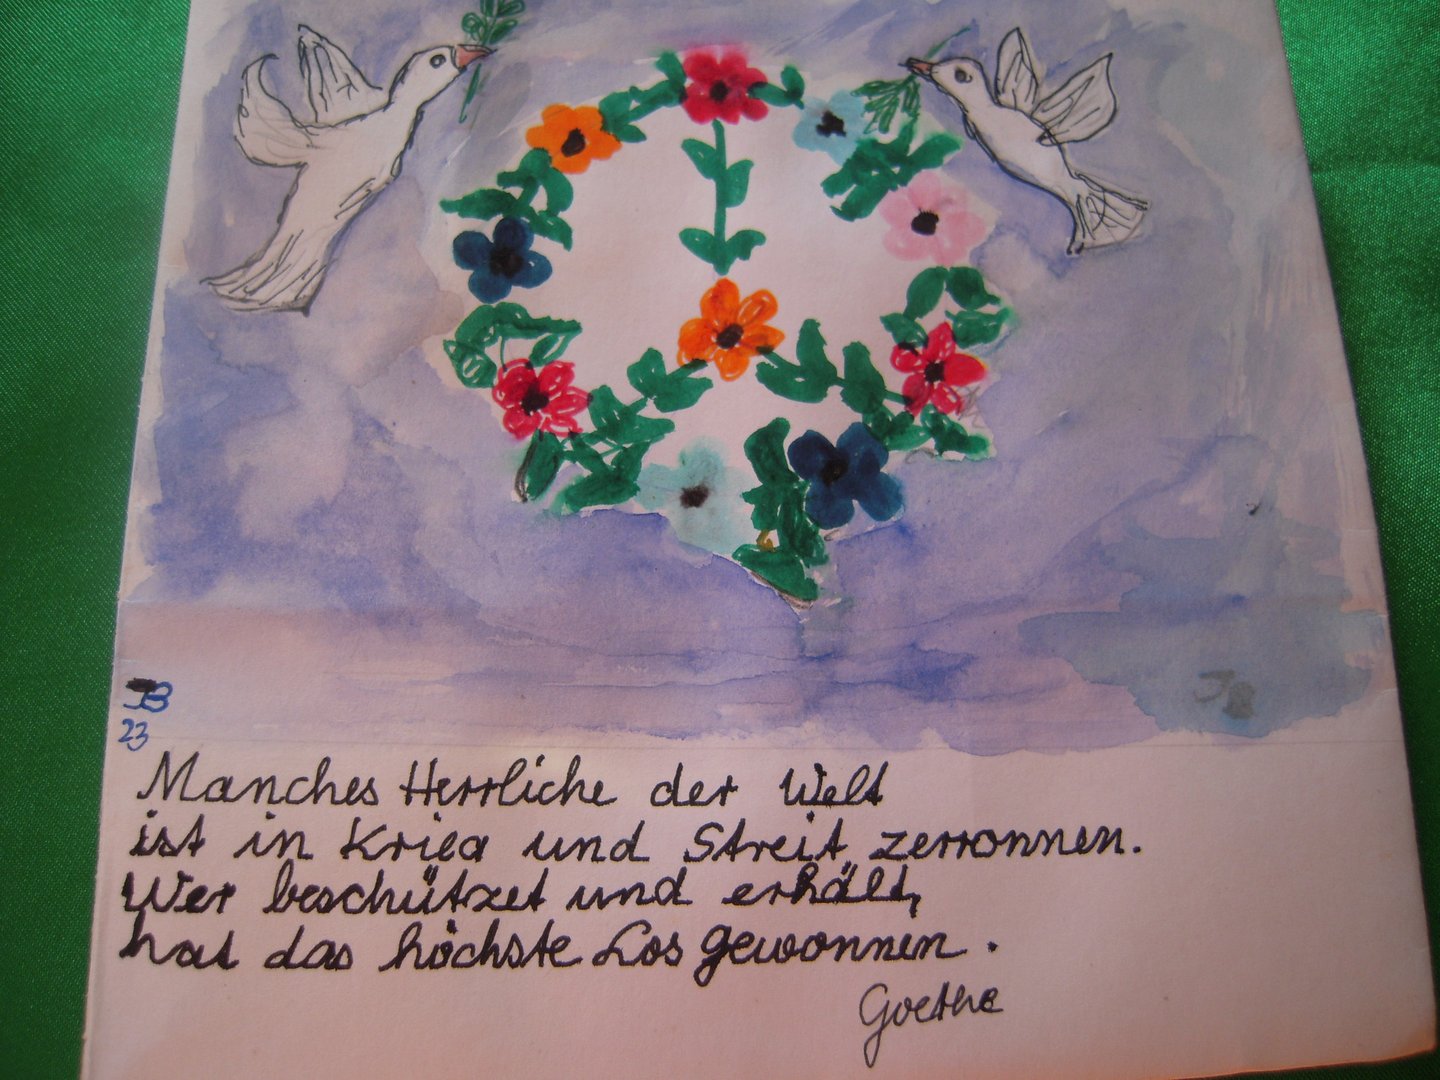 JB
23
JB
Manches Herrliche der Welt
ist in Krieg und Streit zerronnen.
Wer beschützet und erhält,
hat das höchste Los gewonnen.
Goethe